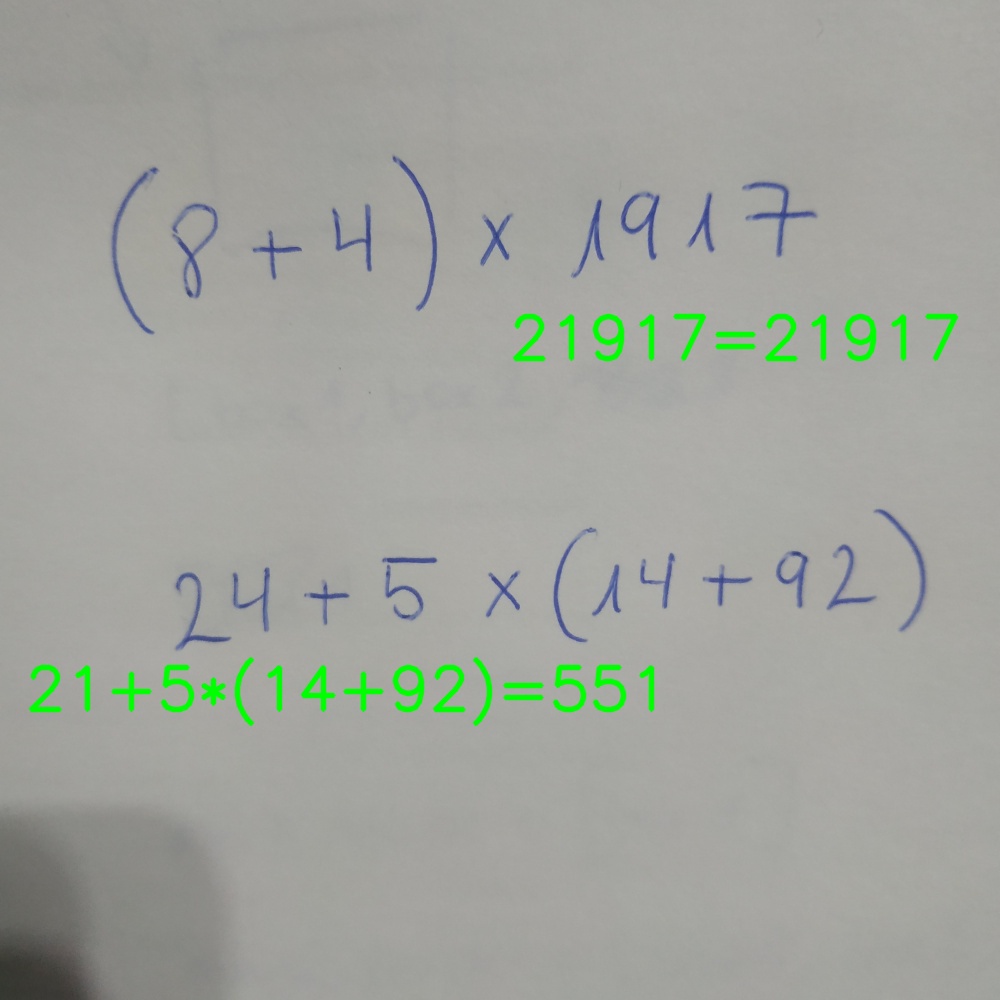 (8+4) x 1917
21917=21917
24+5 x (14+92)
21+5*(14+92)=551